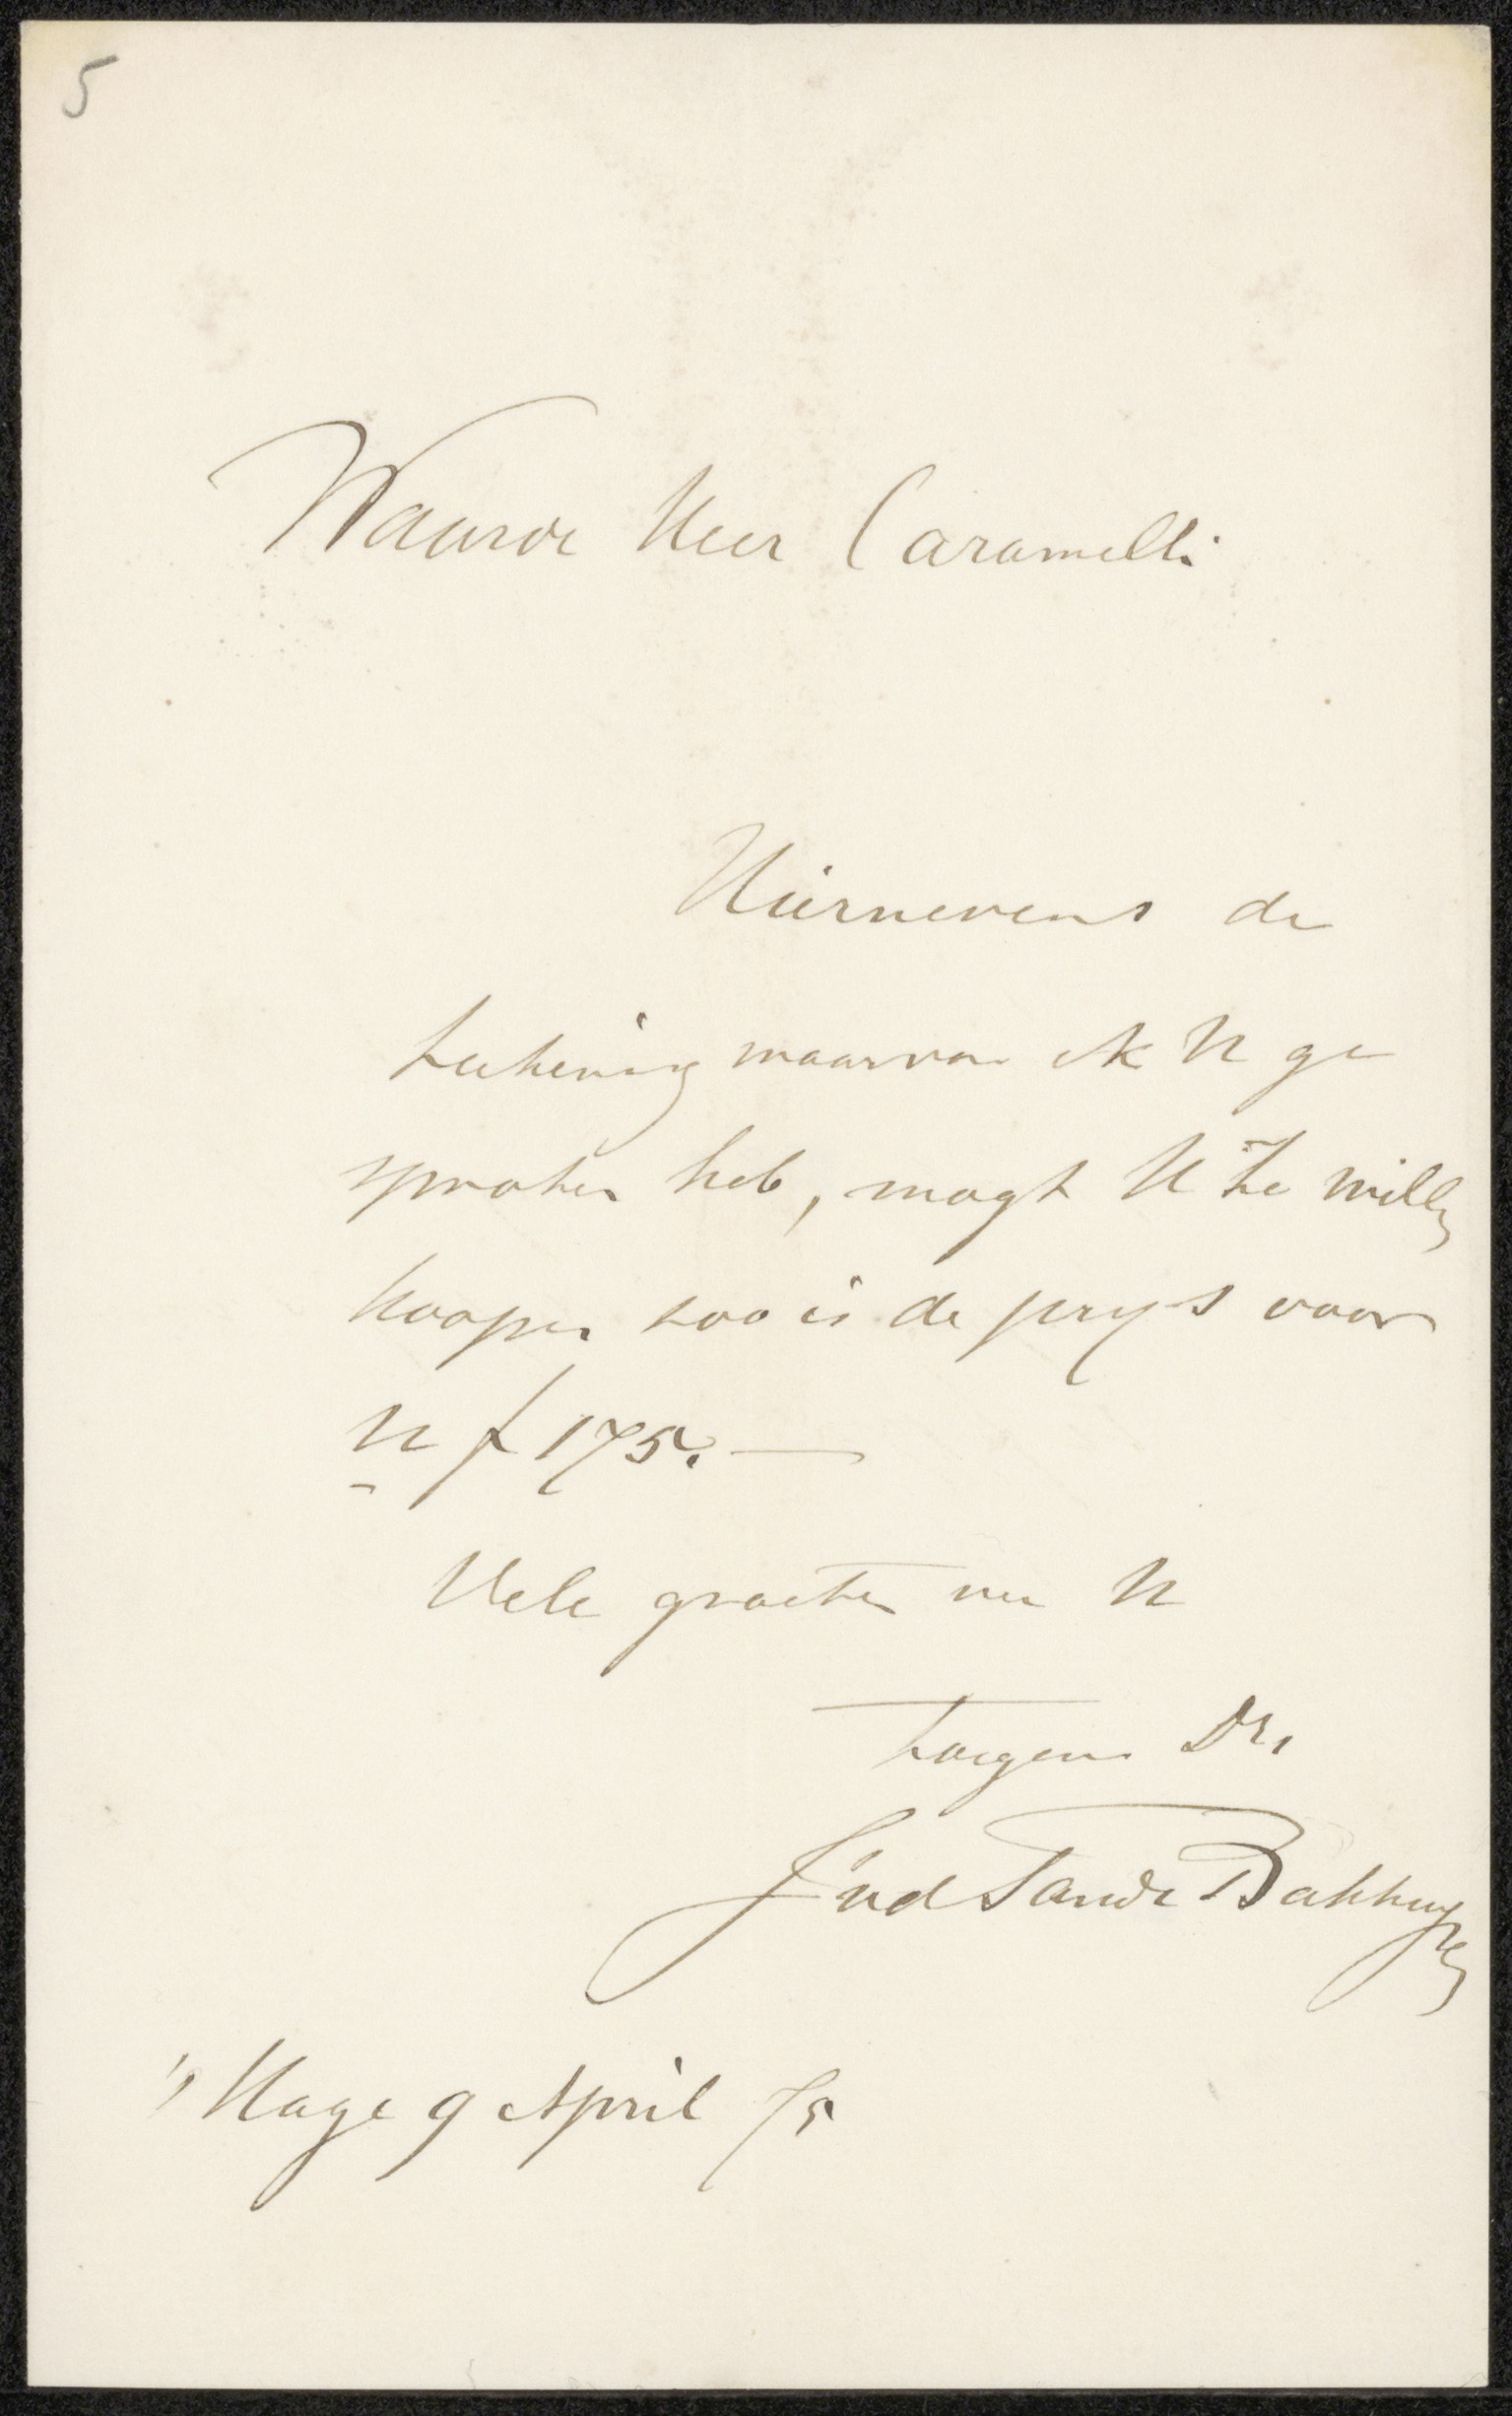 5
Waarde Heer Caramelli
Hiernevens de
teekening waarvan ik U ge
sproken heb, mogt U ze willen
koopen zoo is de prys voor
U f 175.—
Vele groeten van U
toegen Dr.
J vd Sande Bakhuyzen
's Hage 9 April 75